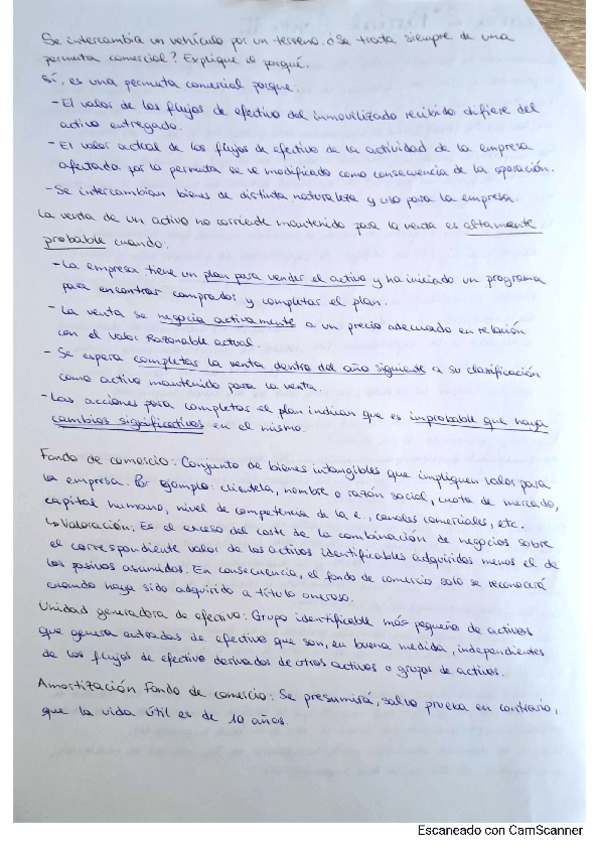 Se intercambia un vehículo por un terreno. ¿Se trata siempre de una
permuta comercial? Explique el porqué.
Sí, es una permuta comercial porque:
- El valor de los flujos de efectivo del inmovilizado recibido difiere del
activo entregado.
- El valor actual de los flujos de efectivo de la actividad de la empresa
afectada por la permuta se ve modificado como consecuencia de la operación.
- Se intercambian bienes de distinta naturaleza y uso para la empresa.
La venta de un activo no corriente mantenido para la venta es altamente
probable cuando:
- La empresa tiene un plan para vender el activo y ha iniciado un programa
para encontrar comprador y completar el plan.
- La venta se negocia activamente a un precio adecuado en relación
con el valor razonable actual.
- Se espera completar la venta dentro del año siguiente a su clasificación
como activo mantenido para la venta.
- Las acciones para completar el plan indican que es improbable que haya
cambios significativos en el mismo.
Fondo de comercio: Conjunto de bienes intangibles que impliquen valor para
la empresa. Por ejemplo: clientela, nombre o razón social, cuota de mercado,
capital humano, nivel de competencia de la e., canales comerciales, etc.
↳ Valoración: Es el exceso del coste de la combinación de negocios sobre
el correspondiente valor de los activos identificables adquiridos menos el de
los pasivos asumidos. En consecuencia, el fondo de comercio solo se reconocerá
cuando haya sido adquirido a título oneroso.
Unidad generadora de efectivo: Grupo identificable más pequeño de activos
que genera entradas de efectivo que son, en buena medida, independientes
de los flujos de efectivo derivados de otros activos o grupos de activos.
Amortización Fondo de comercio: Se presumirá, salvo prueba en contrario,
que la vida útil es de 10 años.
Escaneado con CamScanner